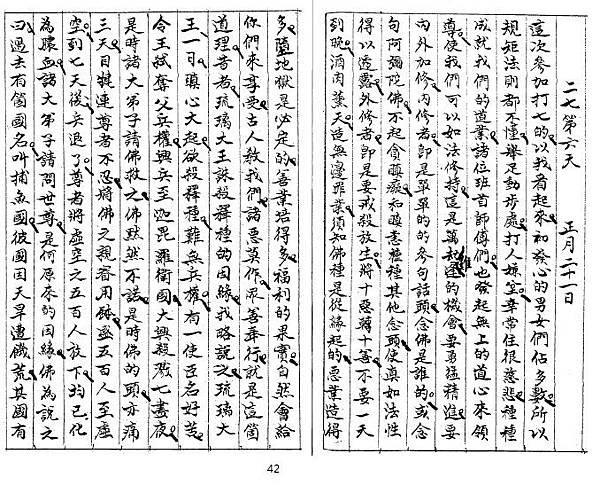 二七第六天　正月二十一日
這次參加打七的以我看起來初發心的男女們佔多數。所以
規矩法則都不懂。舉足動步處處打人嫌。幸常住很慈悲。種種
成就我們的道業。諸位班首師傅們也發起無上的道心來領
導。使我們可以如法修持。這是萬劫難逢的機會。要勇猛精進。要
內外加修。內修者即是單單的的參句話頭念佛是誰的。或念
句阿彌陀佛。不起貪瞋癡和恚種種其他念頭。使真如法性
得以透露。外修者即是要戒殺放生。將十惡轉十善。不要一天
到晚酒肉薰天。造無邊罪業。須知佛種是從緣起的。惡業造得
多。墮地獄是必定的。善業培得多。福利的果實。自然會給
你們來享受。古人教我們諸惡莫作。眾善奉行。就是這個
道理。昔者琉璃大王誅殺釋種的因緣。我略說之。琉璃大
王一日瞋心大起。欲殺釋種。
令王弒奪父兵權。興兵至迦毘羅衛國大興殺戮七晝夜。
是時諸大弟子請佛救之。佛默然不諾。是時佛的頭亦痛
三天。目犍連尊者不忍。將佛之親眷用鉢盛五百人至虛
空。到七天後兵退了。尊者將虛空之五百人放下。均已化
為膿血。諸大弟子請問世尊。是何原來的因緣。佛為說之
曰。過去有箇國。名叫捕魚國。彼國因天旱遭饑荒。其國有
42